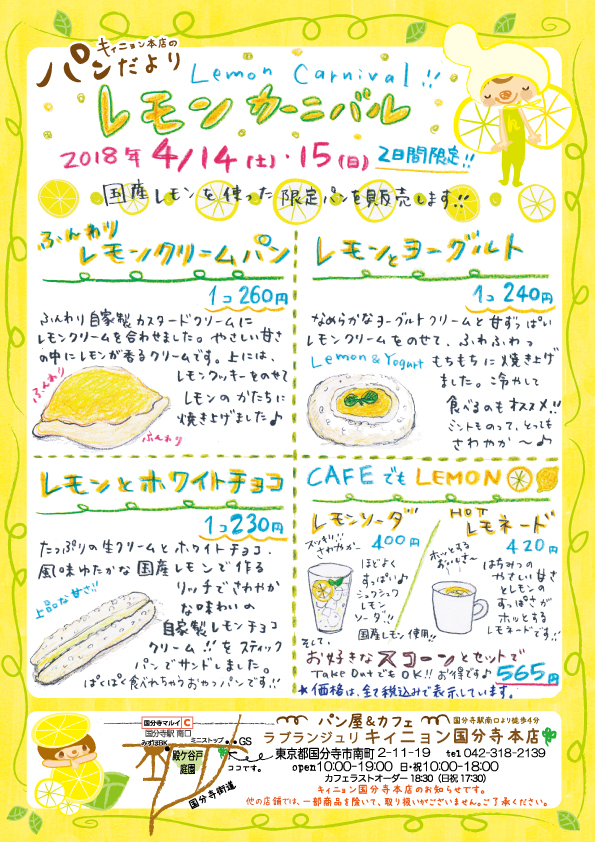 キィニョン本店の
パンだより
Lemon Carnival!!
レモンカーニバル
2018年 4/14(土)・15(日) 2日間限定!!
国産レモンを使った限定パンを販売します!!
ふんわり
レモンクリームパン
1コ260円
ふんわり自家製カスタードクリームに
レモンクリームを合わせました。やさしい甘さ
の中にレモンが香るクリームです。上には、
レモンクッキーをのせて
レモンのかたちに
焼き上げました♪
ふんわり
ふんわり
レモンとヨーグルト
1コ240円
なめらかなヨーグルトクリームと甘ずっぱい
レモンクリームをのせて、ふわふわっ
もちもちに焼き上げ
ました。冷やして
食べるのもオススメ!!
ミントものって、とっても
さわやか〜♪
Lemon & Yogurt
レモンとホワイトチョコ
1コ230円
たっぷりの生クリームとホワイトチョコ、
風味ゆたかな国産レモンで作る
リッチでさわやか
な味わいの
自家製レモンチョコ
クリーム!!をスティック
パンでサンドしました。
ぱくぱく食べれちゃうおやつパンです!!
上品な甘さ!!
CAFEでもLEMON
レモンソーダ
400円
スッキリ!!
さわやか〜
ほどよく
すっぱい♪
シュワシュワ
レモン
ソーダ!!
国産レモン使用!!
HOT
レモネード
420円
ホッとする
おいしさ〜
はちみつの
やさしい甘さ
とレモンの
すっぱさが
ホッとする
レモネードです!!
そして、
お好きなスコーンとセットで
Take OutでもOK!! お得です♪ 565円
★価格は、全て税込みで表示しています。
国分寺マルイ
国分寺駅 南口
みずほBK
ミニストップ
GS
殿ケ谷戸
庭園
ココです。
国分寺街道
パン屋&カフェ 国分寺駅南口より徒歩4分
ラブランジュリ キィニョン国分寺本店
東京都国分寺市南町2-11-19 tel 042-318-2139
open10:00-19:00 日・祝10:00-18:00
カフェラストオーダー 18:30 (日祝 17:30)
キィニョン国分寺本店のお知らせです。
他の店舗では、一部商品を除いて、取り扱いがございません。ご了承ください。